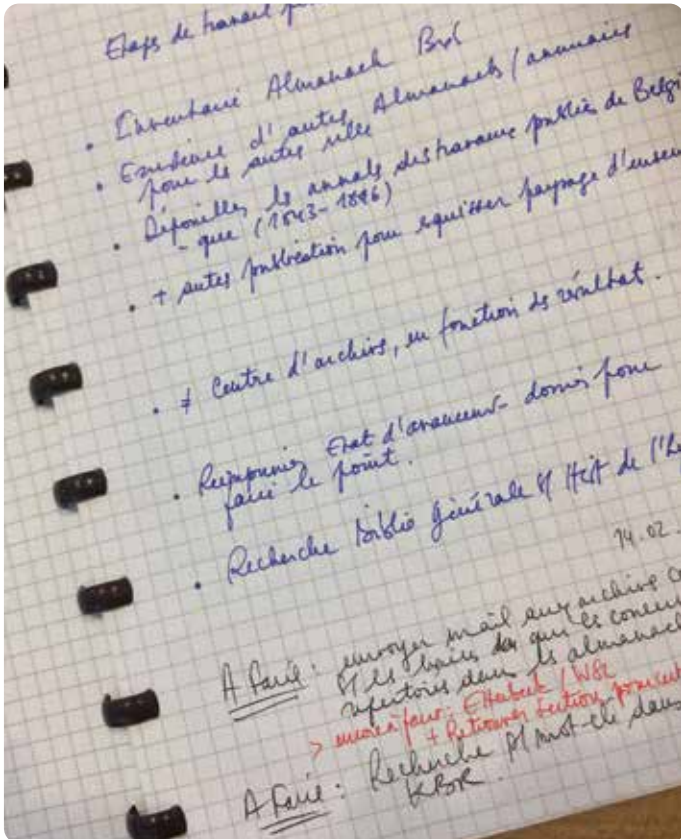 Etaps de travail
• Inventaire Almanach Bxl
• Existence d'autres Almanachs / annuaires
pour les autres ville
• Dépouiller les annales des travaux publics de Belgi
- que (1843-1886)
• + autres publication pour esquisser paysage d'ensem
• ≠ Centre d'archives, en fonction des résultat.
• état d'avancement - pour
faire le point.
• Recherche Biblio Générale Hist de l'
14.02.
A Faire : envoyer mail aux archives
que les concern
répertoires dans les almanach
> encore à faire : Etterbeek / WSL
+ Retrouver section
A Faire : Recherche mot-clé dans
KBR.